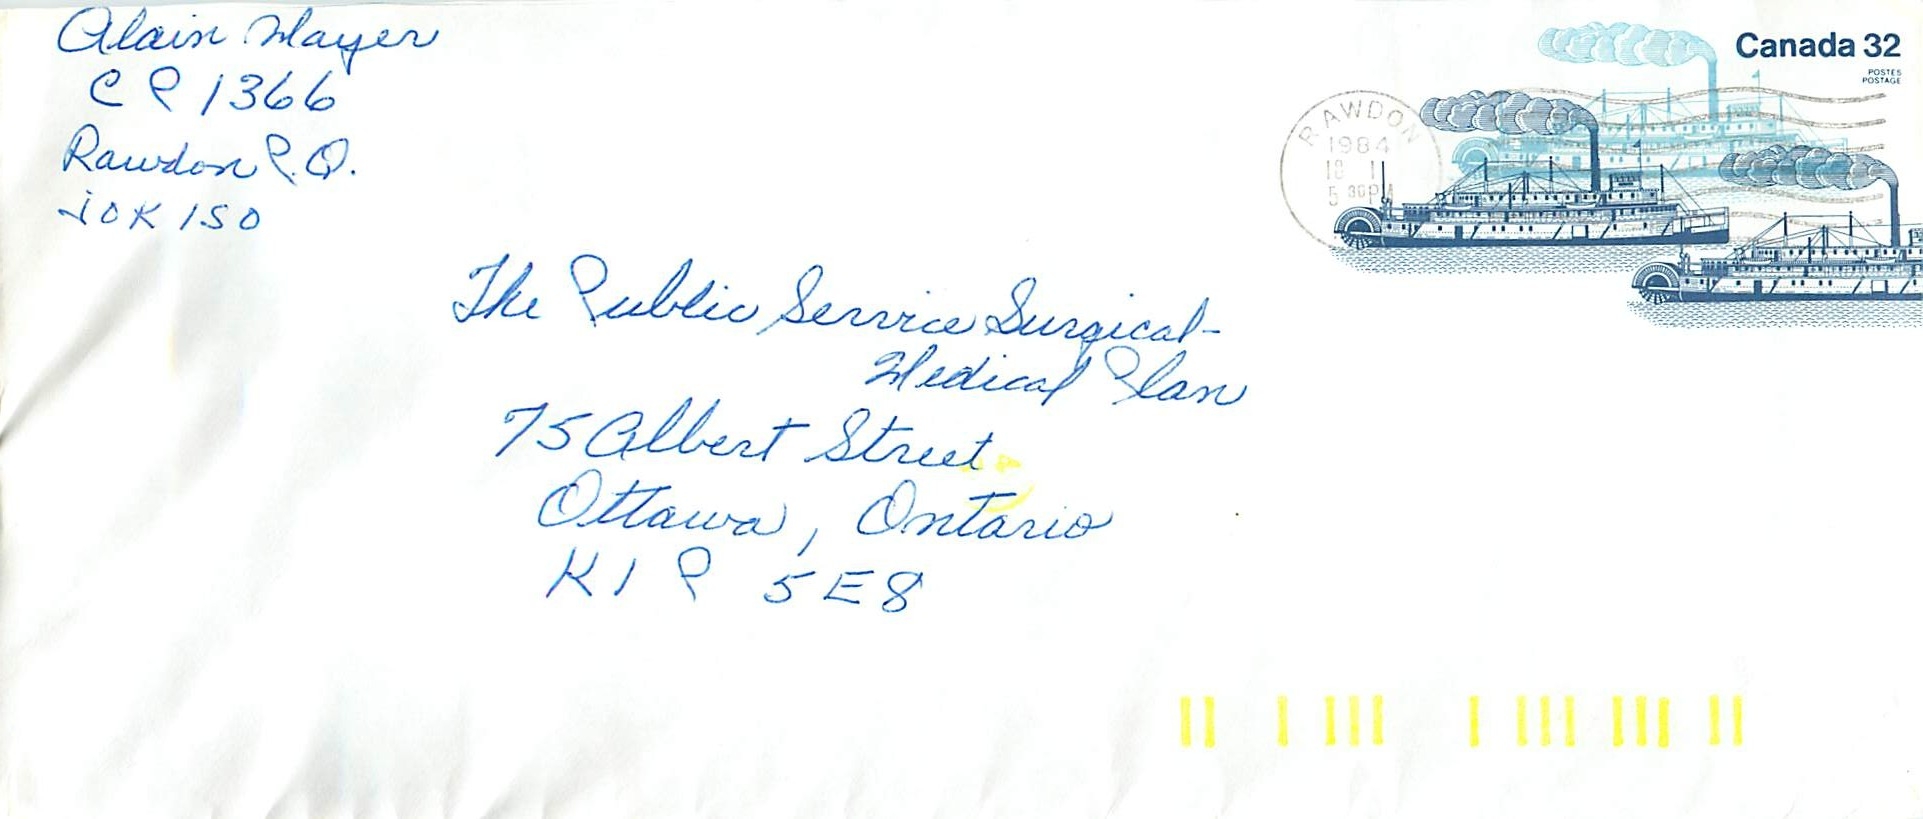 Alain Mayer
CP 1366
Rawdon P.Q.
J0K 1S0
Canada 32
POSTES
POSTAGE
RAWDON
1984
18 1
5 30PM
The Public Service Surgical-
Medical Plan
75 Albert Street
Ottawa, Ontario
K1P 5E8